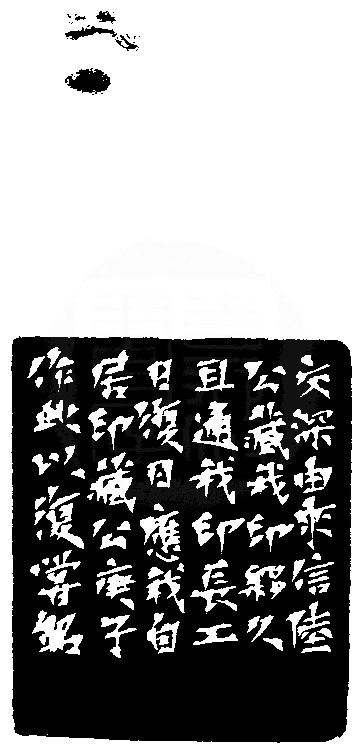 交深由來信陸
公藏我印夥久
且通我印長工
日復日應我自
居印藏公庚子
作此以復嘗銘